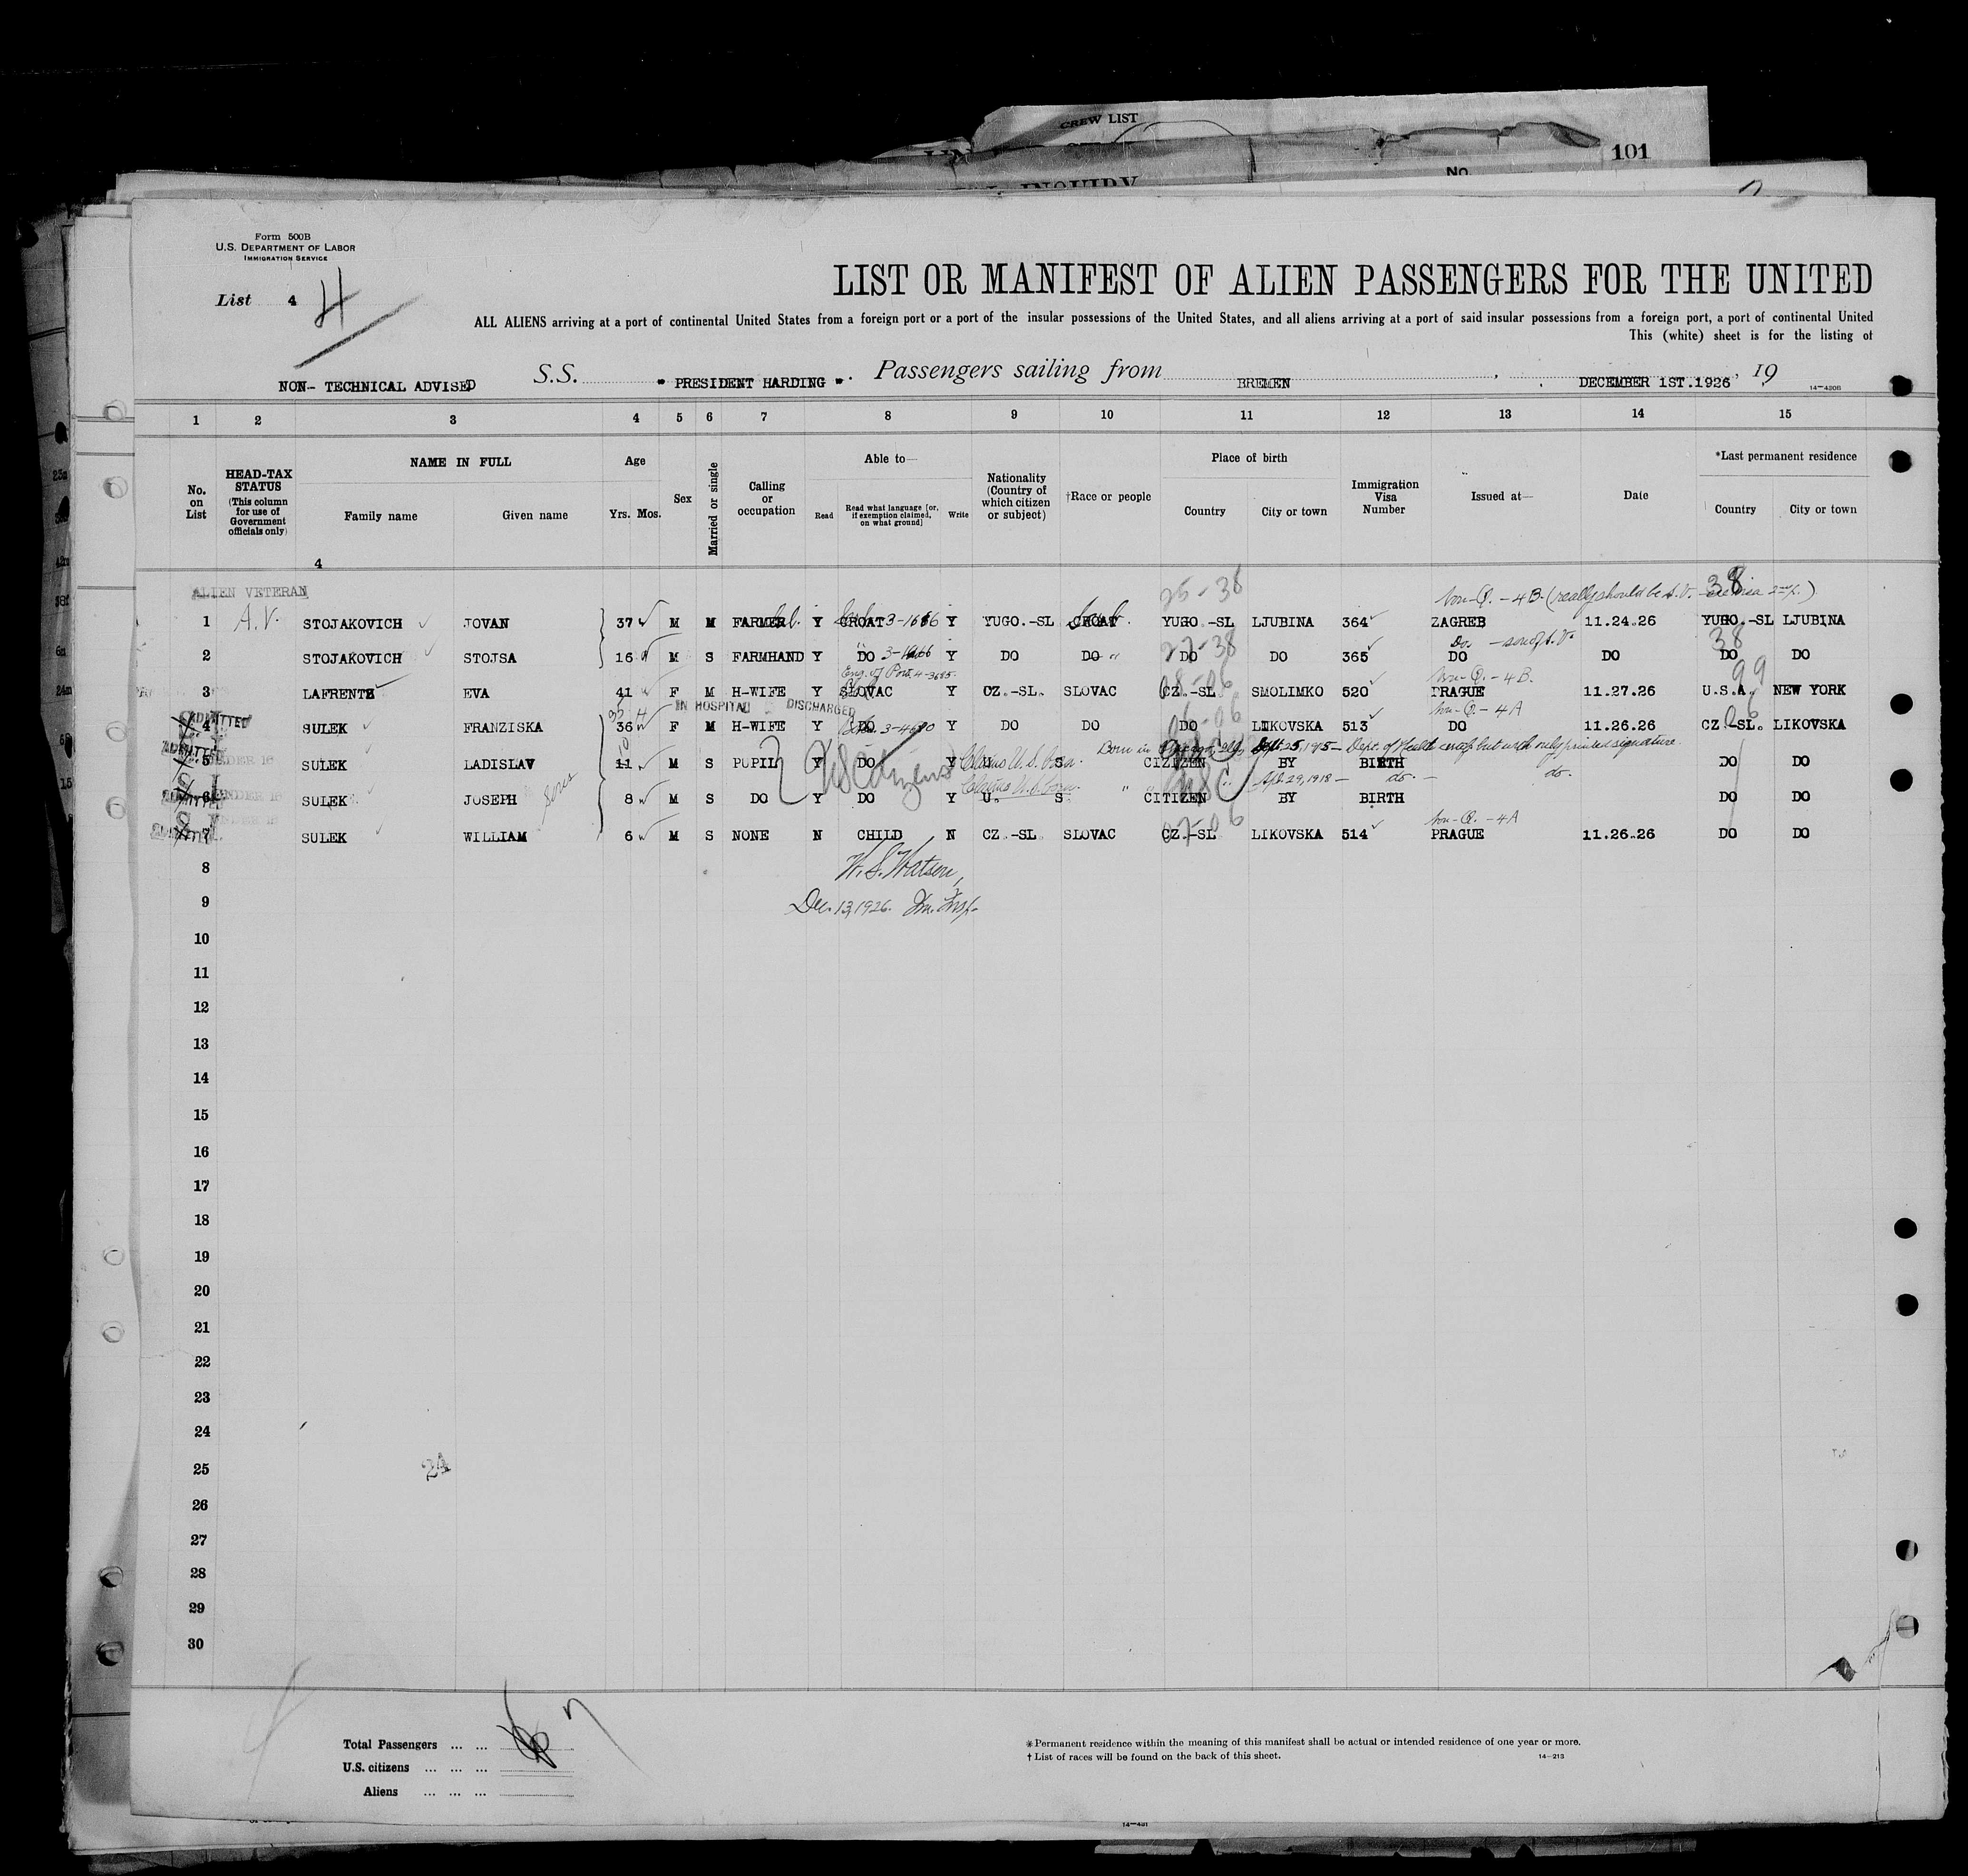 CREW LIST
101
INQUIRY
No.
Form 500B
U.S. DEPARTMENT OF LABOR
IMMIGRATION SERVICE
List 4 4
LIST OR MANIFEST OF ALIEN PASSENGERS FOR THE UNITED
ALL ALIENS arriving at a port of continental United States from a foreign port or a port of the insular possessions of the United States, and all aliens arriving at a port of said insular possessions from a foreign port, a port of continental United
This (white) sheet is for the listing of
NON- TECHNICAL ADVISED S.S. " PRESIDENT HARDING ". Passengers sailing from BREMEN, DECEMBER 1ST.1926, 19
14-430B
1 2 3 4 5 6 7 8 9 10 11 12 13 14 15
No. on List
HEAD-TAX STATUS (This column for use of Government officials only)
NAME IN FULL
Family name Given name
Age
Yrs. Mos.
Sex
Married or single
Calling or occupation
Able to—
Read Read what language [or, if exemption claimed, on what ground] Write
Nationality (Country of which citizen or subject)
†Race or people
Place of birth
Country City or town
Immigration Visa Number
Issued at—
Date
*Last permanent residence
Country City or town
4
ALIEN VETERAN 25-38 Non-Q. - 4B (really should be A.V. 38
1 A.V. STOJAKOVICH JOVAN 37 M M FARMER Y CROAT Y YUGO.-SL CROAT YUGO.-SL LJUBINA 364 ZAGREB 11.24.26 YUGO.-SL LJUBINA
27-38 Do. - son of A.V. 38
2 STOJAKOVICH STOJSA 16 M S FARMHAND Y DO Y DO DO DO DO 365 DO DO DO DO
Non-Q. - 4B. 99
3 LAFRENTZ EVA 41 F M H-WIFE Y SLOVAC Y CZ.-SL. SLOVAC CZ.-SL SMOLIMKO 520 PRAGUE 11.27.26 U.S.A. NEW YORK
IN HOSPITAL DISCHARGED Non-Q. - 4A 06
ADMITTED
4 SULEK FRANZISKA 36 F M H-WIFE Y DO Y DO DO DO LIKOVSKA 513 DO 11.26.26 CZ.-SL. LIKOVSKA
Born in Chicago, Ill, Sept. 25, 1915 - Dept. of Health certif but with only printed signature
ADMITTED UNDER 16
5 SULEK LADISLAV 11 M S PUPIL Y DO Y U. S CIZIZEN BY BIRTH DO DO
US Citizens Claims U.S. born. Claims U.S. born. " " Apl. 29, 1918 - do. - do.
ADMITTED UNDER 16
6 SULEK JOSEPH 8 M S DO Y DO Y U. S. CITIZEN BY BIRTH DO DO
USC
ADMITTED UNDER 16 07-06 Non-Q. - 4A
7 SULEK WILLIAM 6 M S NONE N CHILD N CZ.-SL SLOVAC CZ.-SL LIKOVSKA 514 PRAGUE 11.26.26 DO DO
8
W. S. Watson,
9
Dec. 13, 1926. Im. Insp.
10
11
12
13
14
15
16
17
18
19
20
21
22
23
24
25
24
26
27
28
29
30
Total Passengers ... ... 7
U.S. citizens ... ... ...
Aliens ... ... ...
*Permanent residence within the meaning of this manifest shall be actual or intended residence of one year or more.
†List of races will be found on the back of this sheet.
14-213
14-431